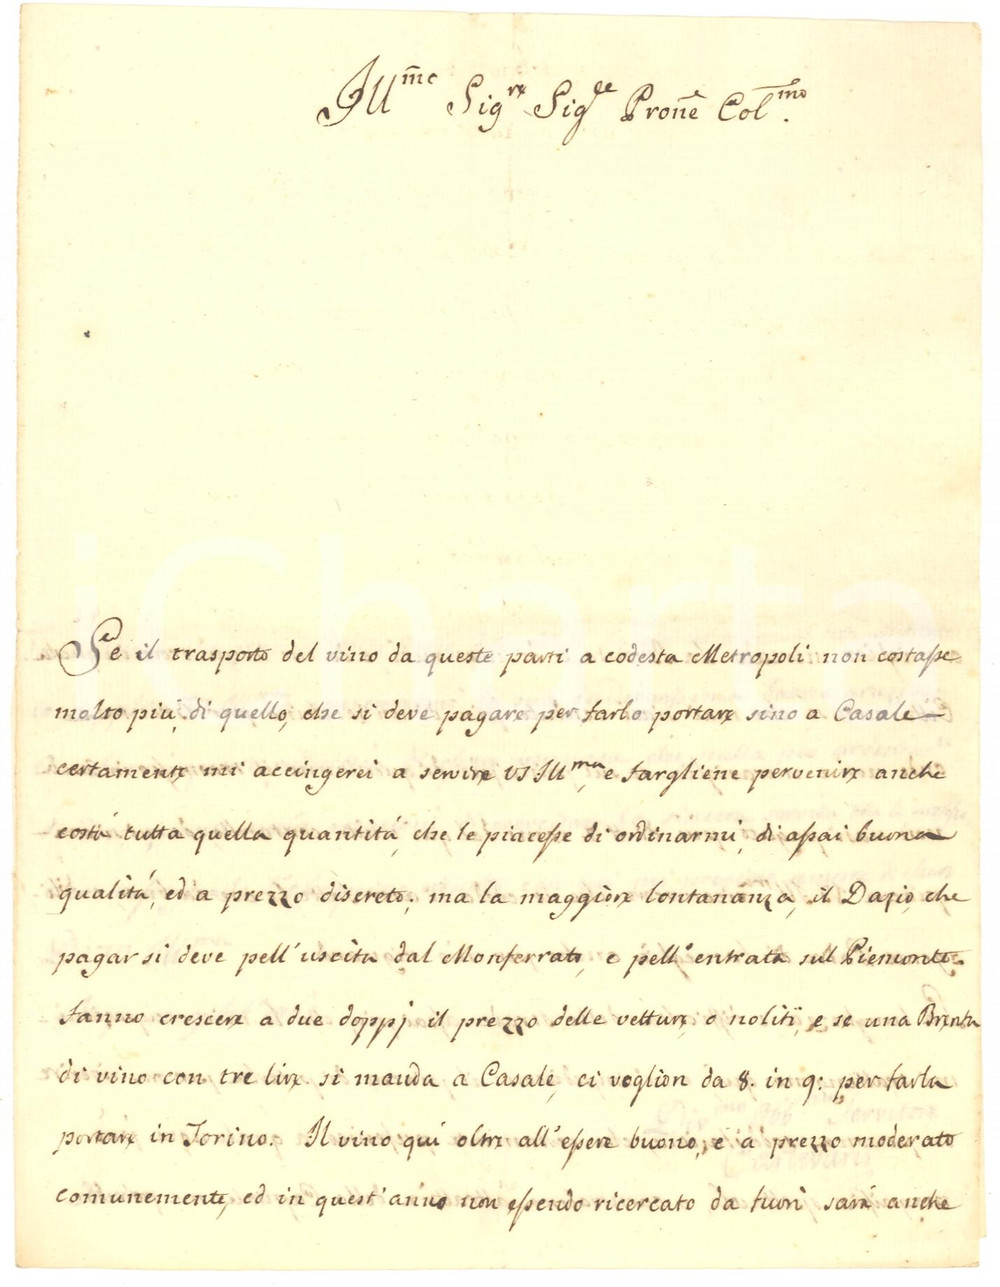 Illmo Sigre Sigre Prone Colmo.
Se il trasporto del vino da queste parti a codesta Metropoli non costasse
molto più di quello, che si deve pagare per farlo portare sino a Casale
certamente mi accingerei a servire VS Illma, e fargliene pervenire anche
costà tutta quella quantità, che le piacesse di ordinarmi, di assai buona
qualità, ed a prezzo discreto; ma la maggiore lontananza, il Dazio, che
pagar si deve pell'uscita dal Monferrato, e pell'entrata sul Piemonte
fanno crescere a due doppj il prezzo delle vetture, o noliti, e se una Brenta
di vino con tre lire si manda a Casale, ci voglion da 8. in 9: per farla
portare in Torino. Il vino quì oltre all'essere buono, è a prezzo moderato
comunemente, ed in quest'anno non essendo ricercato da fuori sarà anche
iCharta